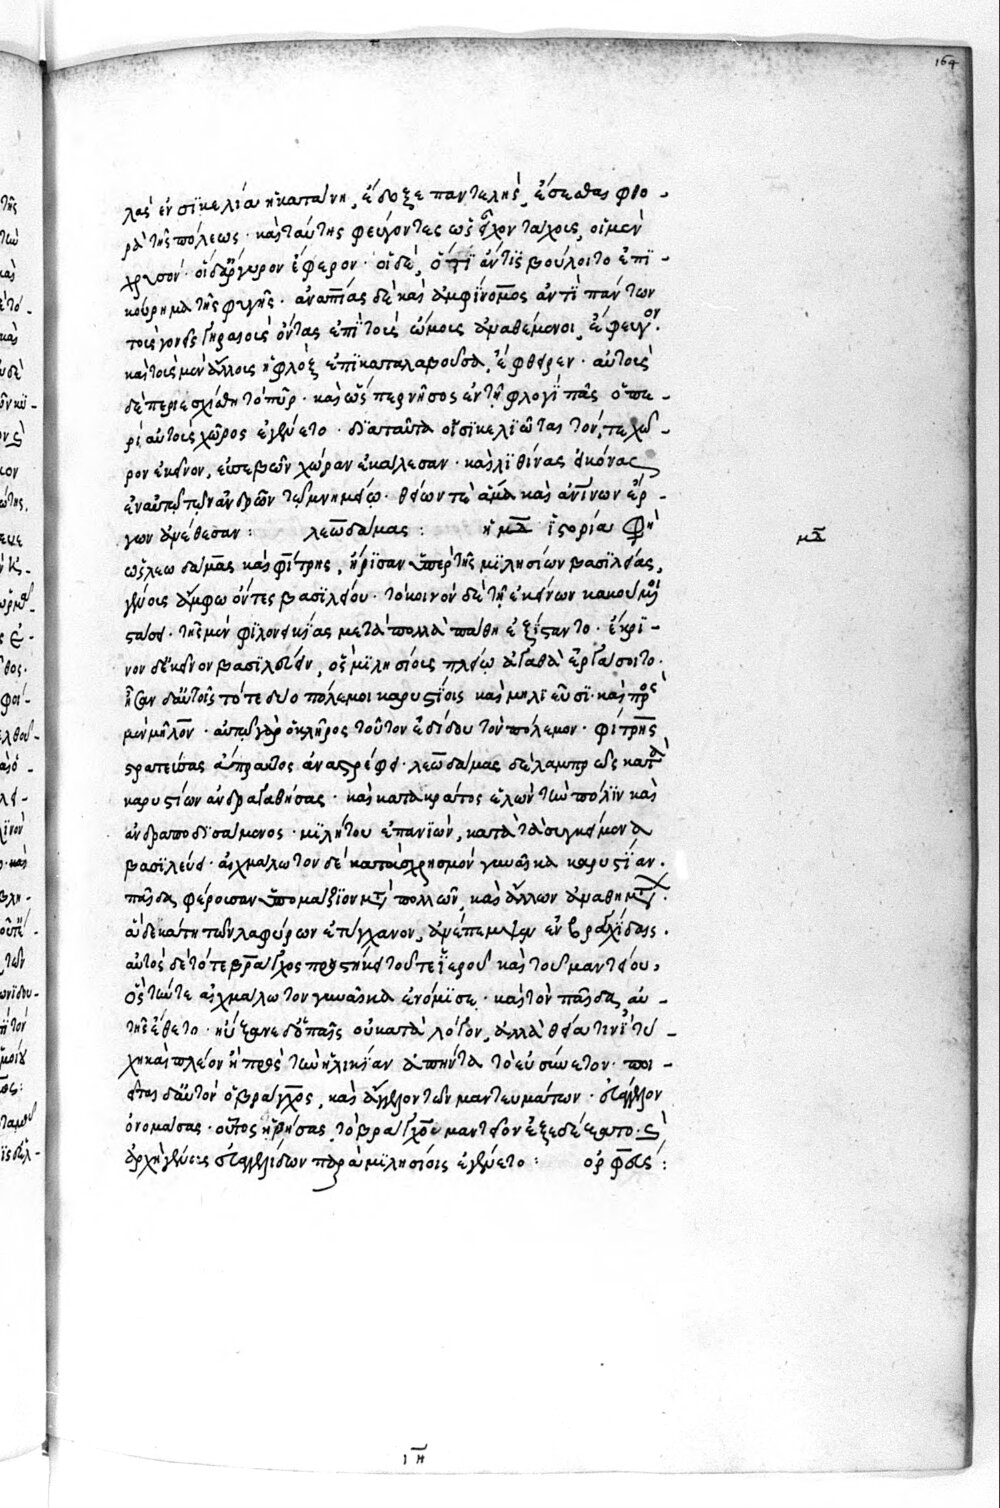 164
λας ἐν σϊκελία ἡ κατάνη, ἔδοξε παντελὴς ἔσεσθαι φθο-
ρὰ τῆς πόλεως· καὶ ταύτης φεύγοντες ὡς εἶχον τάχους, οἱ μὲν
χρυσόν· οἱ δ' ἄργυρον ἔφερον· οἱ δὲ, ὅ τϊ ἄν τϊς βούλοιτο ἐπϊ-
κούρημα τῆς φυγῆς· ἀναπίας δὲ καὶ ἀμφίνομος ἀντὶ πάντων
τοὺς γονεῖς γηραιοὺς ὄντας ἐπὶ τοὺς ὤμοις ἀναθέμενοι, ἔφευγον·
καὶ τοὺς μὲν ἄλλους ἡ φλὸξ ἐπϊκαταλαβοῦσα, ἔφθειρεν· αὐτοὺς
δὲ περιεσχίσθη τὸ πῦρ· καὶ ὥσπερ νῆσος ἐν τῇ φλογὶ πᾶς ὁ πε-
ρὶ αὐτοὺς χῶρος ἐγένετο· διὰ ταῦτα οἱ σϊκελιῶται τόν, τε χῶ-
ρον ἐκεῖνον, εὐσεβῶν χώραν ἐκάλεσαν· καὶ λϊθίνας εἰκόνας
ἐν αὐτῷ τῶν ἀνδρῶν τῶ μνημείω· θείων τὲ ἅμα καὶ ἀνίνων ἔρ-
γων ἀνέθεσαν: λεωδάμας: ἡ μδ ἱστορία φη
μδ
ὡς λεωδάμας καὶ φίτρης, ἤρϊσαν ὑπὲρ τῆς μϊλησίων βασϊλείας,
γένους ἄμφω ὄντες βασϊλείου· τὸ κοινὸν δὲ τῇ ἐκείνων κακούμενον
στάσει· τῆς μὲν φϊλονεικίας μετὰ πολλὰ πάθη ἐξίσταντο· ἔκρϊ-
νον δ' ἐκεῖνον βασϊλεύειν, ὃς μϊλησίους πλείω ἀγαθὰ ἐργάσοιτο·
ἦσαν δ' αὐτοῖς τότε δύο πόλεμοι καρυστίοις καὶ μηλϊεῦσϊ· καὶ πρὸς
μὲν μῆλον· αὐτῷ γὰρ ὁ κλῆρος τοῦτον ἐδίδου τὸν πόλεμον· φίτρης
στρατεύσας ἄπρακτος ἀναστρέφει· λεωδάμας δὲ λαμπρῶς κατὰ
καρυστίων ἀνδραγαθήσας· καὶ κατὰ κράτος ἑλὼν τὴν πόλϊν καὶ
ἀνδραποδϊσάμενος· μϊλήτου ἐπανϊών, κατὰ τὰ συγκείμενα
βασϊλεύει· αἰχμάλωτον δὲ κατὰ χρησμὸν γυναῖκα καρυστίαν·
παῖδα φέρουσαν ὑπομάζϊον μετὰ πολλῶν, καὶ ἄλλων ἀναθημάτων·
ἃ δεκάτη τῶν λαφύρων ἐτύγχανον, ἀνέπεμψεν ἐν βραγχίδαις·
αὐτὸς δὲ τότε βράγχος προστήκει τοῦ τε ϊεροῦ καὶ τοῦ μαντείου,
ὃς τήν τε αἰχμάλωτον γυναῖκα ἐνόμϊσε· καὶ τὸν παῖδα, αὐ-
τῆς ἔθετο· ηὔξανε δ' ὁ παῖς οὐ κατὰ λόγον, ἀλλὰ θεία τινϊ τύ-
χη καὶ πλεῖον ἢ πρὸς τὴν ἡλικίαν ἀπήντα τὸ εὐσύνετον· ποι-
εῖται δ' αὐτὸν ὁ βράγχος, καὶ ἄγγελον τῶν μαντευμάτων· εὐάγγελον
ὀνομάσας· οὗτος ἡβήσας, τὸ βράγχου μαντεῖον ἐξεδέξατο· καὶ
ἀρχὴ γένους εὐαγγελίδων παρὰ μϊλησίοις ἐγένετο: ὀρφεὺς:
ιη